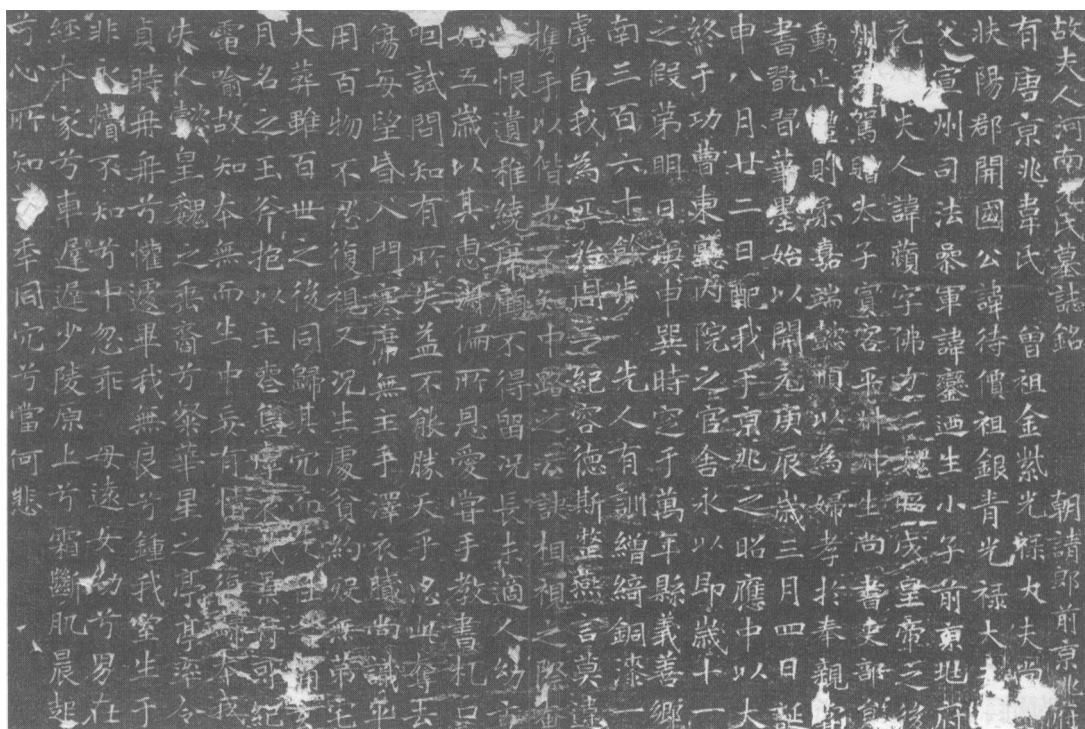 故夫人河南元氏墓誌銘
朝請郎前京兆府
有唐京兆韋氏 曾祖金紫光祿大夫尚
扶陽郡開國公諱待價祖銀青光祿大
父宣州司法叅軍諱鑾迺生小子前京兆府
元夫人諱蘋字佛力二魏昭成皇帝之後
駕贈太子賓客平叔生尚書吏部員
動止禮則柔嘉端懿順以為婦孝於奉親甞
書翫習華墨始以開元庚辰歲三月四日誕
申八月廿二日配我于京兆之昭應中以大
終于功曹東廳內院之官舍永以即歲十一
之假第明日庚申巽時窆于萬年縣義善鄉
南三百六十餘步 先人有訓繒綺銅漆一
虔自我為匹殆周二紀容德斯整燕言莫違
攜手以偕老不知中路之云訣相視之際奄
恨遺稚繞席顧不得留況長未適人幼方
始五歲以其惠淑偏所恩愛嘗手教書札口
咽試問知有所失益不能勝天乎忍此奪去
傷每望昏入門寒席無主手澤衣膩尚識平
用百物不忍復視又況生處貧約歿無第宅
大葬雖百世之後同歸其穴而先往之痛玄
月名之玉斧抱以主喪烏虖哀哉景行可紀
電喻故知本無而生中妄有情今復歸本我
夫人懿皇魏之垂裔兮粲華星之亭亭率令
貞時冉冉兮懽遽畢我無良兮鍾我室生于
非永懷不知兮中忽乖母遠女幼兮男在
經本家兮車遲遲少陵原上兮霜斷肌晨起
兮心所知奉同穴兮當何悲